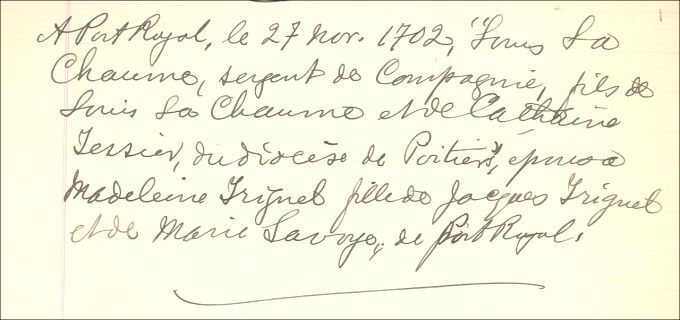 A Port Royal, le 27 nov. 1702, "Louis La
Chaume, sergent de Compagnie, fils de
Louis La Chaume et de Catherine
Tessier, du diocèse de Poitiers", épousa
Madeleine Triguel fille de Jacques Triguel
et de Marie Savoye, de Port Royal.